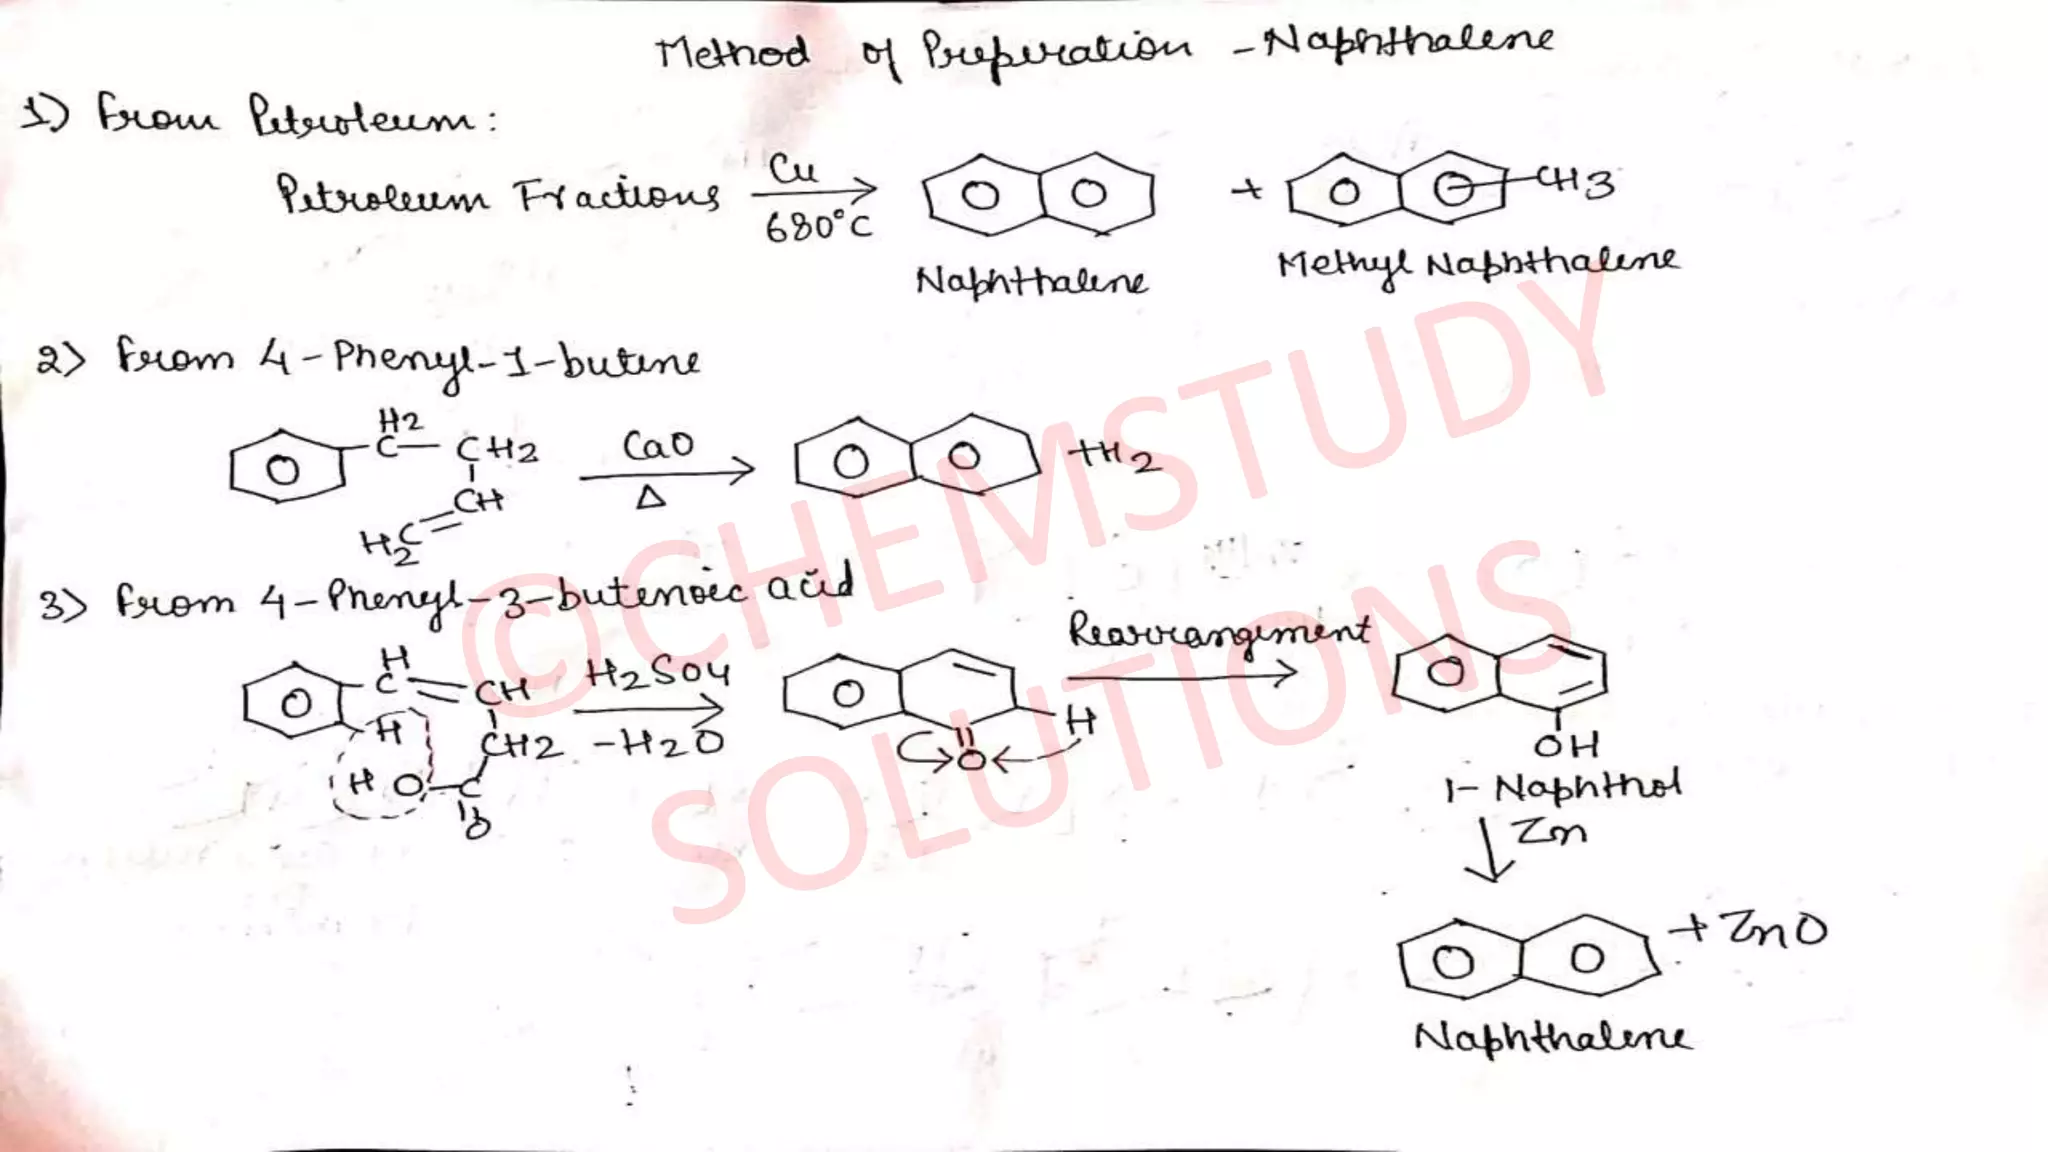 Method of Preparation - Naphthalene
1) From Petroleum:
Petroleum Fractions Cu 680°C + CH3
Naphthalene Methyl Naphthalene
2) From 4-Phenyl-1-butene
H2 C CH2 CH H2C CaO Δ +H2
3) From 4-Phenyl-3-butenoic acid
H C CH H CH2 H O C O H2SO4 -H2O O H Rearrangement OH
1-Naphthol
Zn
+ ZnO
Naphthalene
©CHEMSTUDY
SOLUTIONS